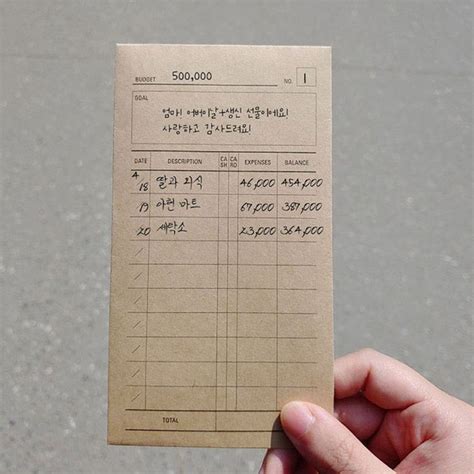 BUDGET 500,000 NO. 1
GOAL
엄마! 어버이날+생신 선물이에요!
사랑하고 감사드려요!
DATE DESCRIPTION CASH CARD EXPENSES BALANCE
4/18 딸과 외식 46,000 454,000
19 이편 마트 67,000 387,000
20 세탁소 23,000 364,000
TOTAL